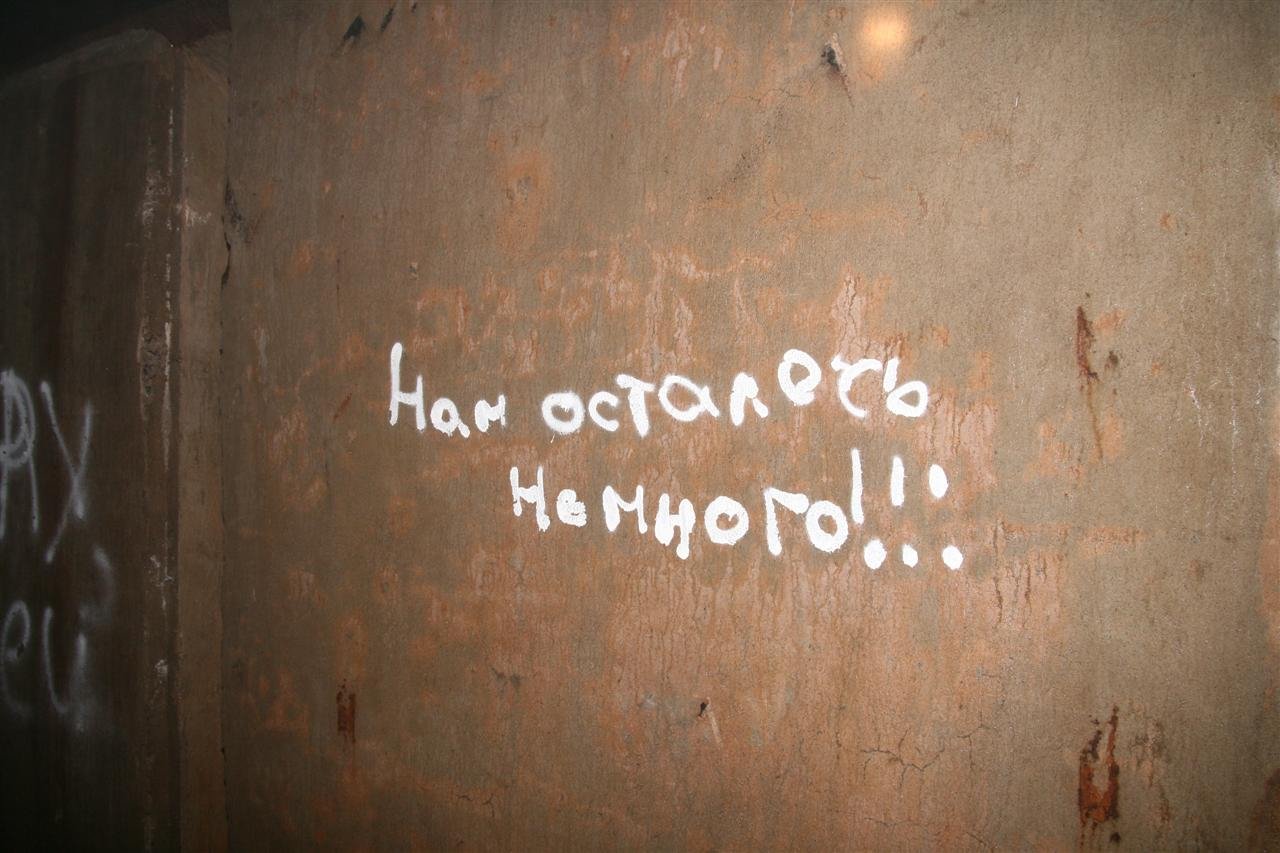 Нам осталось
немного!!!